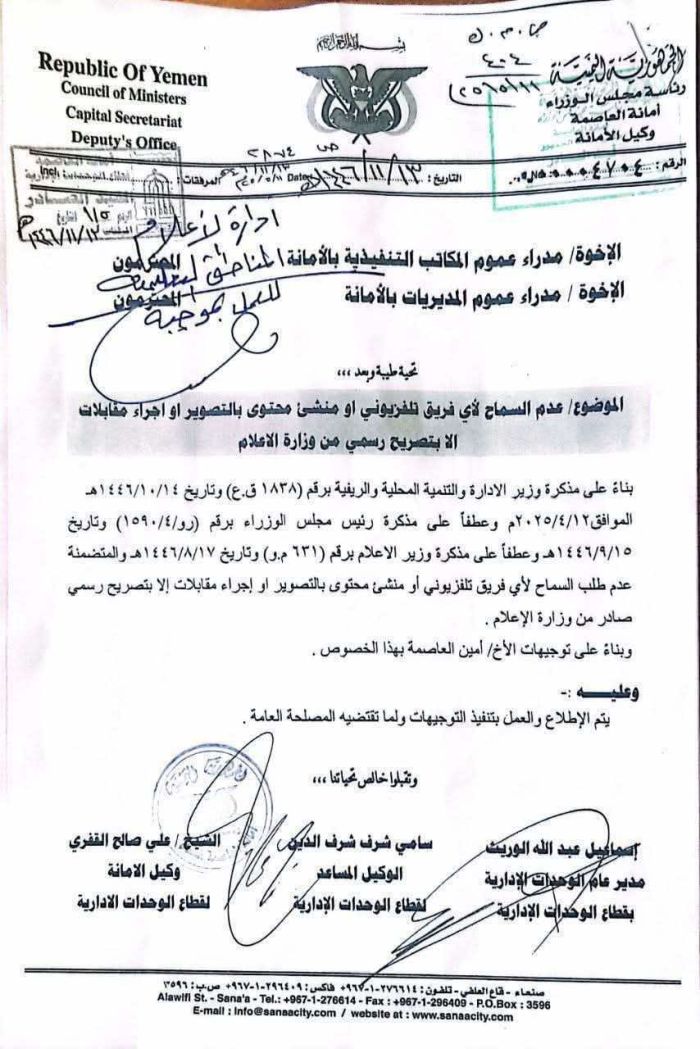 بسم الله الرحمن الرحيم
Republic Of Yemen
Council of Ministers
Capital Secretariat
Deputy's Office
الجمهورية اليمنية
رئاسة مجلس الوزراء
أمانة العاصمة
وكيل الأمانة
٤٠٤
الرقم :
٠٠٠٤٧٠٤
التاريخ : ١٤٤٦/١١/١٣هـ Date
المرفقات :
١٤٤٦/١١/١٣
ادارة الإعلام
المناطق التعليمية
للعمل بموجبه
الإخوة/ مدراء عموم المكاتب التنفيذية بالأمانة المحترمون
الإخوة / مدراء عموم المديريات بالأمانة المحترمون
تحية طيبة وبعد ،،،
الموضوع/ عدم السماح لأي فريق تلفزيوني او منشئ محتوى بالتصوير او اجراء مقابلات
الا بتصريح رسمي من وزارة الاعلام
بناءً على مذكرة وزير الادارة والتنمية المحلية والريفية برقم (١٨٣٨ ق.ع) وتاريخ ١٤٤٦/١٠/١٤هـ
الموافق٢٠٢٥/٤/١٢م وعطفاً على مذكرة رئيس مجلس الوزراء برقم (رو/٤/١٥٩٠) وتاريخ
١٤٤٦/٩/١٥هـ وعطفاً على مذكرة وزير الاعلام برقم (٦٣١ م.و) وتاريخ ١٤٤٦/٨/١٧هـ والمتضمنة
عدم طلب السماح لأي فريق تلفزيوني أو منشئ محتوى بالتصوير او إجراء مقابلات إلا بتصريح رسمي
صادر من وزارة الإعلام .
وبناءً على توجيهات الأخ/ أمين العاصمة بهذا الخصوص .
وعليـــه :-
يتم الإطلاع والعمل بتنفيذ التوجيهات ولما تقتضيه المصلحة العامة .
وتقبلوا خالص تحياتنا ،،،
إسماعيل عبد الله الوريث
مدير عام الوحدات الإدارية
بقطاع الوحدات الإدارية
سامي شرف شرف الدين
الوكيل المساعد
لقطاع الوحدات الإدارية
الشيخ / علي صالح القفري
وكيل الامانة
لقطاع الوحدات الادارية
صنعاء - قاع العلفي - تلفون : ٢٧٦٦١٤-١-٩٦٧+ فاكس : ٢٩٦٤٠٩-١-٩٦٧+ ص.ب : ٣٥٩٦
Alawlfi St. - Sana'a - Tel.: +967-1-276614 - Fax : +967-1-296409 - P.O.Box : 3596
E-mail : Info@sanaacity.com / website at : www.sanaacity.com